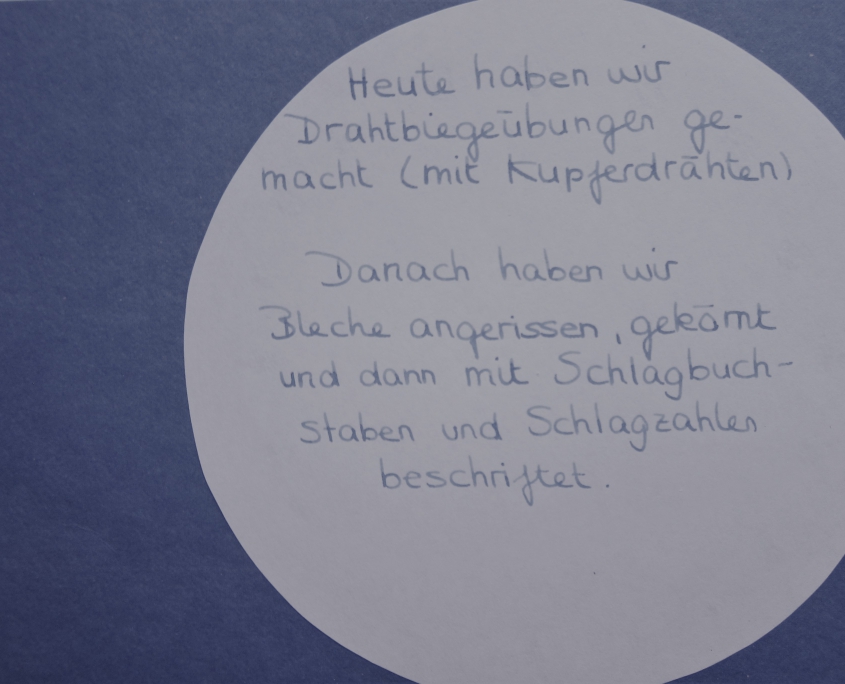 Heute haben wir
Drahtbiegeübungen ge-
macht (mit Kupferdrähten)
Danach haben wir
Bleche angerissen, gekömt
und dann mit Schlagbuch-
staben und Schlagzahlen
beschriftet.